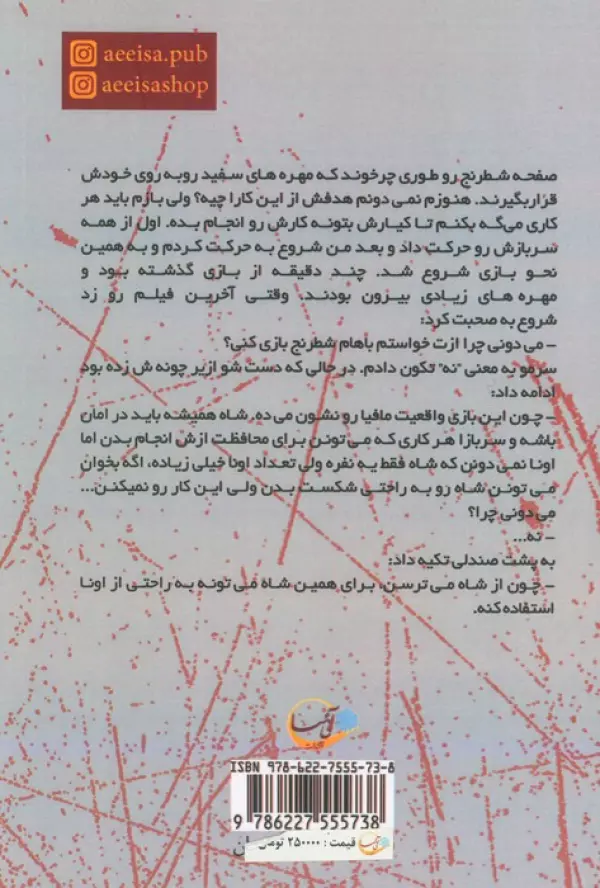 aeeisa.pub
aeeisashop
صفحه شطرنج رو طوری چرخوند که مهره های سفید روبه روی خودش
قرار بگیرند. هنوزم نمی دونم هدفش از این کارا چیه؟ ولی بازم باید هر
کاری می‌گه بکنم تا کیارش بتونه کارش رو انجام بده. اول از همه
سربازش رو حرکت داد و بعد من شروع به حرکت کردم و به همین
نحو بازی شروع شد. چند دقیقه از بازی گذشته بود و
مهره های زیادی بیرون بودند، وقتی آخرین فیلم رو زد
شروع به صحبت کرد:
- می دونی چرا ازت خواستم باهام شطرنج بازی کنی؟
سرمو به معنی "نه" تکون دادم. در حالی که دست شو از یر چونه ش زده بود
ادامه داد:
- چون این بازی واقعیت مافیا رو نشون می ده. شاه همیشه باید در امان
باشه و سربازا هر کاری که می تونن برای محافظت ازش انجام بدن اما
اونا نمی دونن که شاه فقط یه نفره ولی تعداد اونا خیلی زیاده، اگه بخوان
می تونن شاه رو به راحتی شکست بدن ولی این کار رو نمیکنن...
می دونی چرا؟
- نه...
به پشت صندلی تکیه داد:
- چون از شاه می ترسن، برای همین شاه می تونه به راحتی از اونا
استفاده کنه.
ISBN 978-622-7555-73-8
9 786227 555738
قیمت : ۲۵۰۰۰۰ تومان